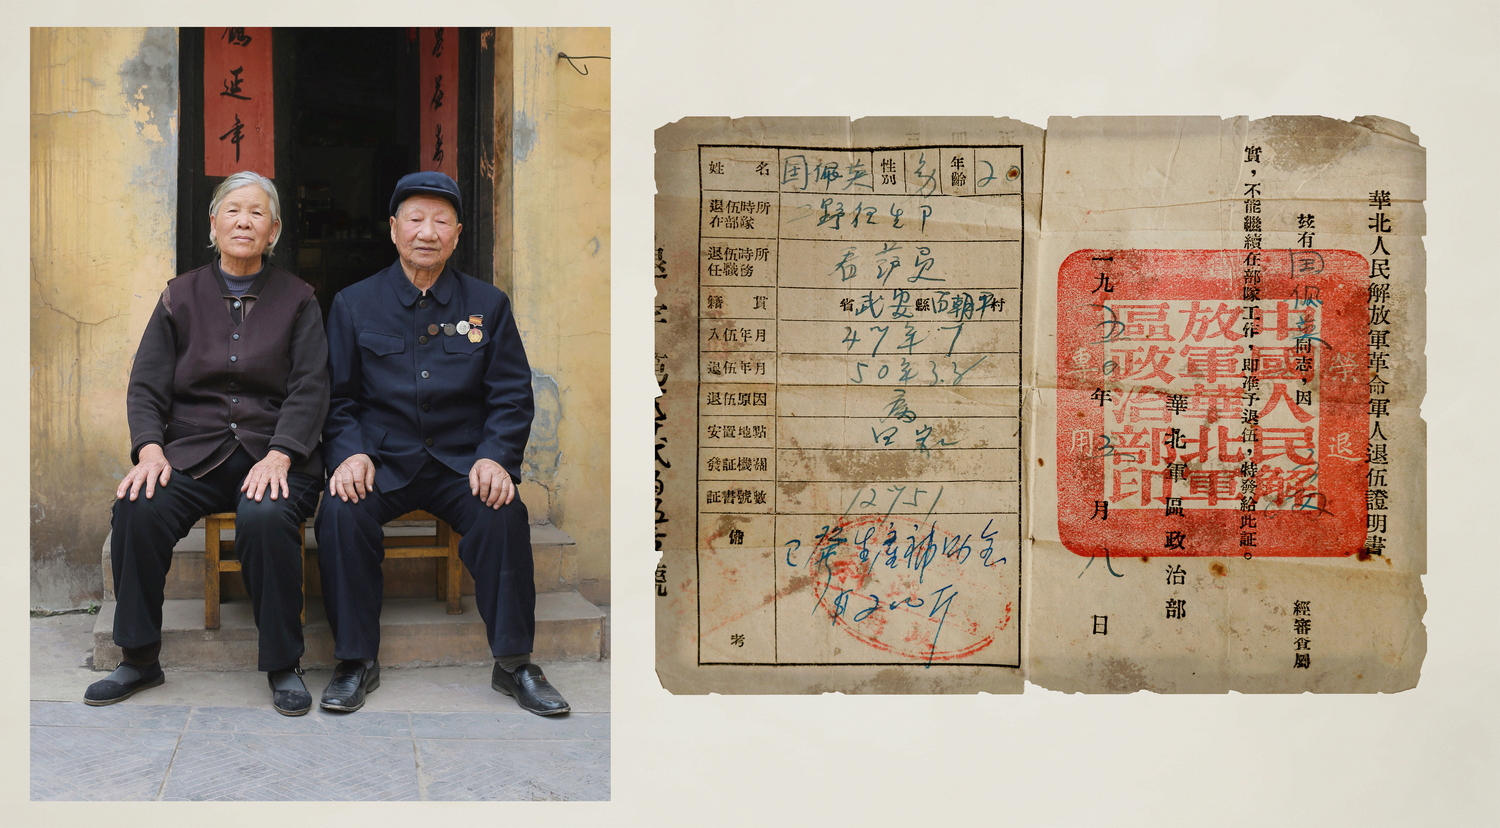 延年
益壽
姓名 国佩英 性別 女 年齡 20
退伍時所在部隊 二野衛生部
退伍時所任職務 看护員
籍貫 省武安縣 村
入伍年月 47年7
退伍年月 50年3.8
退伍原因 病
安置地點 回家
發証機關
証書號數 12751
備考 已發生產補助金
華北人民解放軍革命軍人退伍證明書
茲有国佩英同志,因
經審查屬
實,不能繼續在部隊工作,即准予退伍,特發給此証。
華北軍區政治部
一九五〇年三月八日
中國人民解
放軍華北軍
區政治部印
榮退
軍用